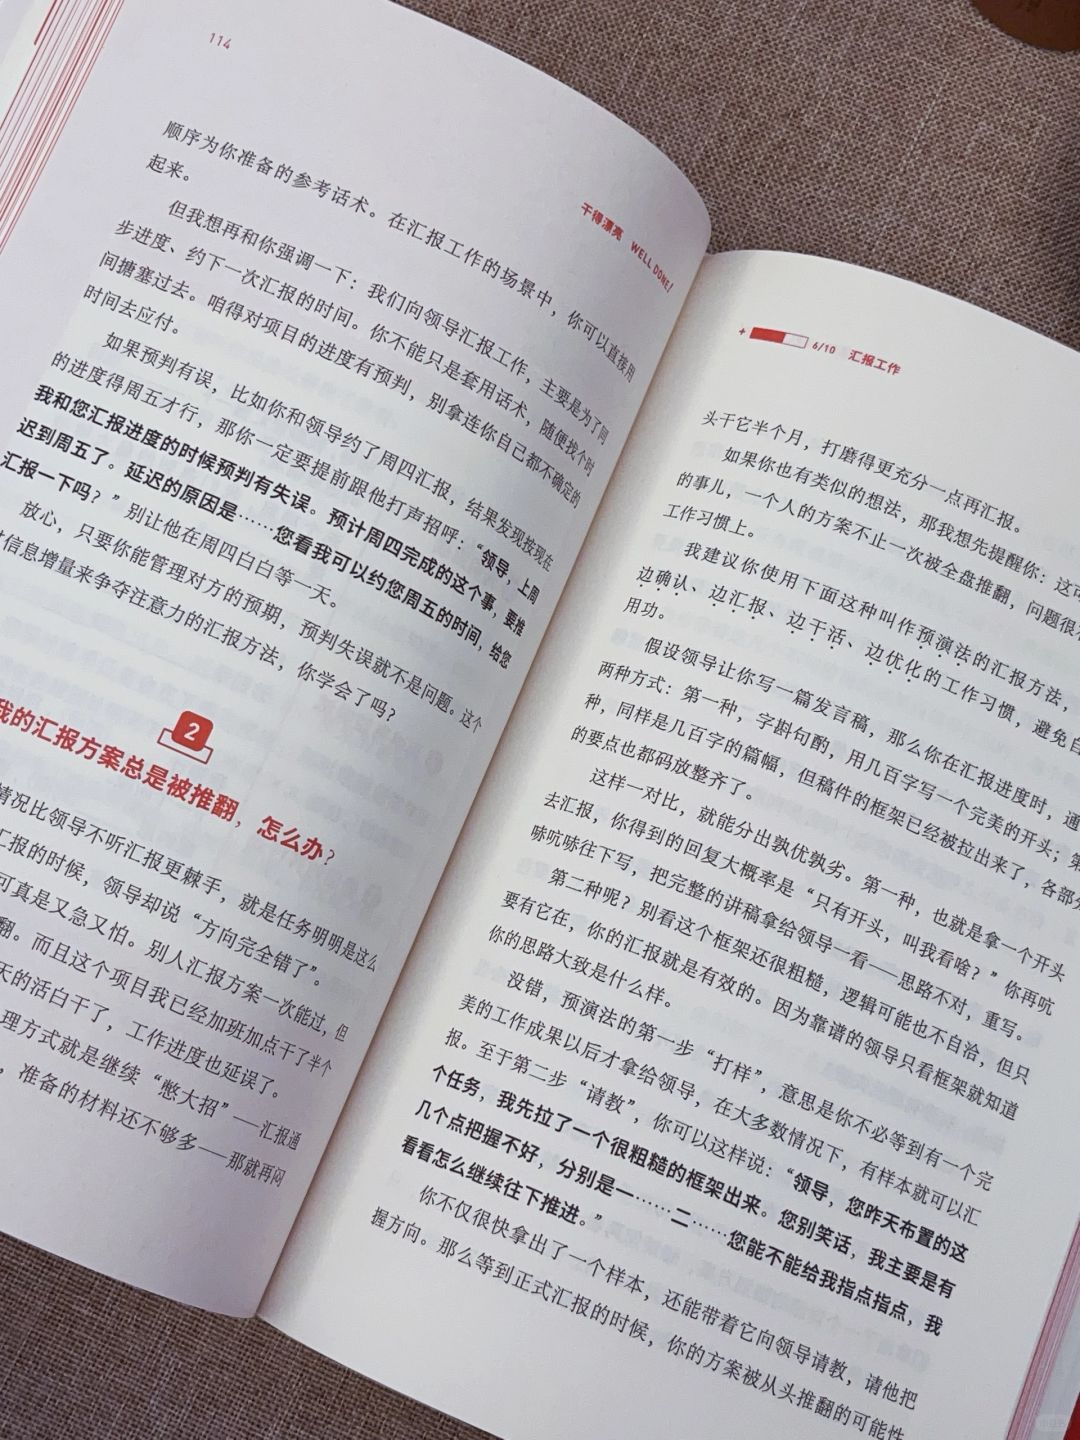 114
干得漂亮 WELL DONE!
顺序为你准备的参考话术。在汇报工作的场景中，你可以直接用
起来。
但我想再和你强调一下：我们向领导汇报工作，主要是为了同
步进度、约下一次汇报的时间。你不能只是套用话术，随便找个时
间搪塞过去。咱得对项目的进度有预判，别拿连你自己都不确定的
时间去应付。
如果预判有误，比如你和领导约了周四汇报，结果发现按现在
的进度得周五才行，那你一定要提前跟他打声招呼：“领导，上周
我和您汇报进度的时候预判有失误。预计周四完成的这个事，要推
迟到周五了。延迟的原因是……您看我可以约您周五的时间，给您
汇报一下吗？”别让他在周四白白等一天。
放心，只要你能管理对方的预期，预判失误就不是问题。这个
信息增量来争夺注意力的汇报方法，你学会了吗？
2
我的汇报方案总是被推翻，怎么办？
情况比领导不听汇报更棘手，就是任务明明是这么
汇报的时候，领导却说“方向完全错了”。
可真是又急又怕。别人汇报方案一次能过，但
翻。而且这个项目我已经加班加点干了半个
天的活白干了，工作进度也延误了。
理方式就是继续“憋大招”——汇报通
，准备的材料还不够多——那就再闷
+ 6/10 汇报工作
头干它半个月，打磨得更充分一点再汇报。
如果你也有类似的想法，那我想先提醒你：这可
的事儿，一个人的方案不止一次被全盘推翻，问题很
工作习惯上。
我建议你使用下面这种叫作预演法的汇报方法，
边确认、边汇报、边干活、边优化的工作习惯，避免自
用功。
假设领导让你写一篇发言稿，那么你在汇报进度时，通
两种方式：第一种，字斟句酌，用几百字写一个完美的开头；第
种，同样是几百字的篇幅，但稿件的框架已经被拉出来了，各部分
的要点也都码放整齐了。
这样一对比，就能分出孰优孰劣。第一种，也就是拿一个开头
去汇报，你得到的回复大概率是“只有开头，叫我看啥？”你再吭
哧吭哧往下写，把完整的讲稿拿给领导一看——思路不对，重写。
第二种呢？别看这个框架还很粗糙，逻辑可能也不自洽，但只
要有它在，你的汇报就是有效的。因为靠谱的领导只看框架就知道
你的思路大致是什么样。
没错，预演法的第一步“打样”，意思是你不必等到有一个完
美的工作成果以后才拿给领导，在大多数情况下，有样本就可以汇
报。至于第二步“请教”，你可以这样说：“领导，您昨天布置的这
个任务，我先拉了一个很粗糙的框架出来。您别笑话，我主要是有
几个点把握不好，分别是一……二……您能不能给我指点指点，我
看看怎么继续往下推进。”
你不仅很快拿出了一个样本，还能带着它向领导请教，请他把
握方向。那么等到正式汇报的时候，你的方案被从头推翻的可能性